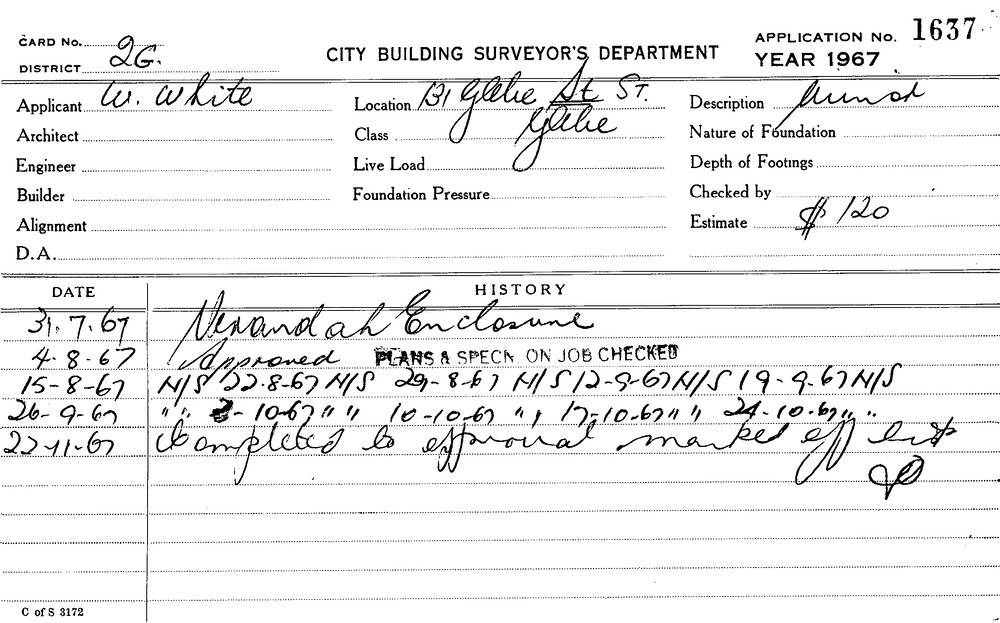 CARD No.
DISTRICT 2G.
CITY BUILDING SURVEYOR'S DEPARTMENT
APPLICATION No. 1637
YEAR 1967
Applicant W. White
Location 131 Glebe St ST.
Description Minor
Architect
Class Glebe
Nature of Foundation
Engineer
Live Load
Depth of Footings
Builder
Foundation Pressure
Checked by
Alignment
Estimate $ 120
D.A.
DATE HISTORY
31.7.67 Verandah Enclosure
4-8-67 Approved PLANS & SPECN ON JOB CHECKED
15-8-67 N/S 22.8-67 N/S 29-8-67 N/S 12-9-67 N/S 19-9.67 N/S
26-9-67 " " 3-10-67 " " 10-10-67 " " 17-10-67 " " 24-10-67 " "
22-11-67 Completed to approval marked off list
C of S 3172